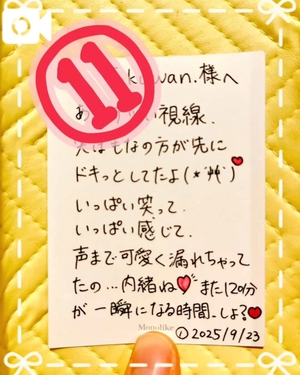 ⑪
kuwan.様へ
あ い視線.
の方が先に
ドキっとしてたよ(*´艸`)
いっぱい笑って.
いっぱい感じて.
声まで可愛く漏れちゃって
たの…内緒ね♥また120分
が一瞬になる時間.しよ?♥
Monolike
① 2025/9/23